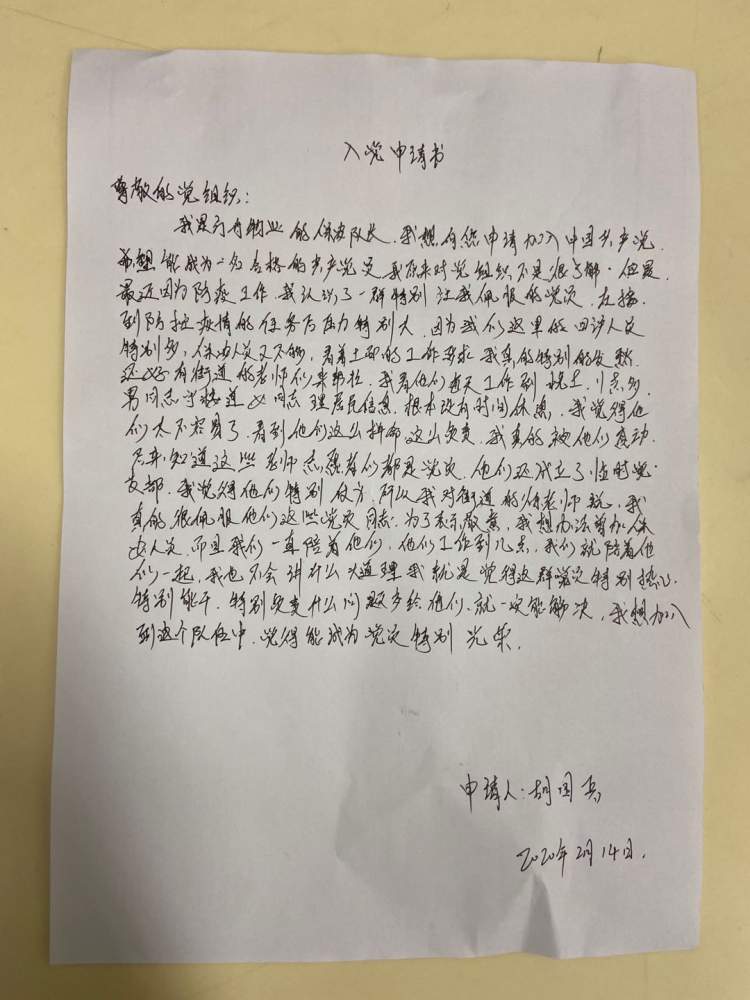 入党申请书
尊敬的党组织：
我是 物业的保安队长，我想向您申请加入中国共产党
希望能成为一名合格的共产党员 我原来对党组织不是很了解．但是
最近因为防疫工作，我认识了一群特别让我佩服的党员．在接
到防控疫情的任务后压力特别大．因为我们这里的回沪人员
特别多，保安人员又不够，看着上面的工作要求 我真的特别的发愁．
还好有街道的老师们来帮忙．我看他们每天工作到 点多
男同志守 道 女同志理居民信息，根本没有时间休息．我觉得他
们太不容易了．看到他们这么拼命 这么负责．我真的被他们感动．
后来，知道这些老师志愿者们都是党员．他们还成立了临时党
支部．我觉得他们特别伟大．所以我对街道的 老师说，我
真的很佩服他们这些党员同志．为了表示敬意，我想办法增加保
安人员，而且我们一直陪着他们，他们工作到几点，我们就陪着他
们一起，我也不会讲什么大道理 我就是觉得这群党员特别热心．
特别能干．特别负责 什么问题 给他们．就一定能解决，我想加入
到这个队伍中．觉得能成为党员特别光荣．
申请人：胡国兵
2020年2月14日．